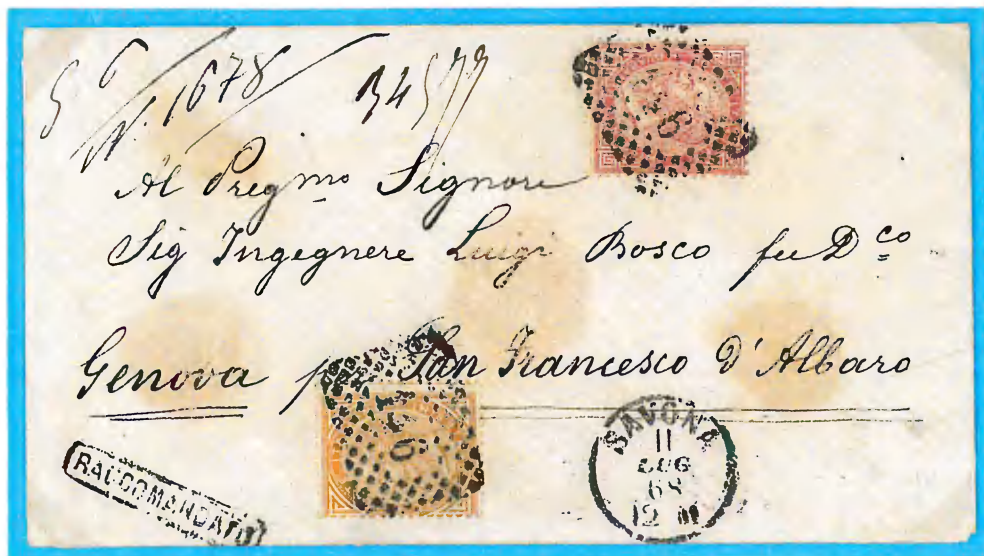 N. 1678
Al Pregmo Signore
Sig Ingegnere Luigi Bosco fu Dco
Genova p San Francesco d'Albaro
RACCOMANDATO
SAVONA
11
LUG
12 M